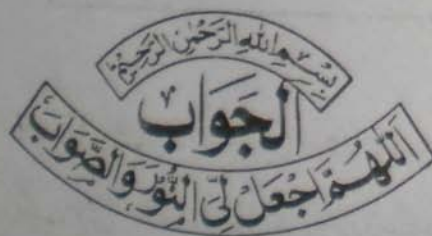 بِسْمِ اللهِ الرَّحْمٰنِ الرَّحِيْمِ
اَلْجَوَابُ
اَللّٰهُمَّ اجْعَلْ لِّىَ النُّوْرَ وَالصَّوَابَ